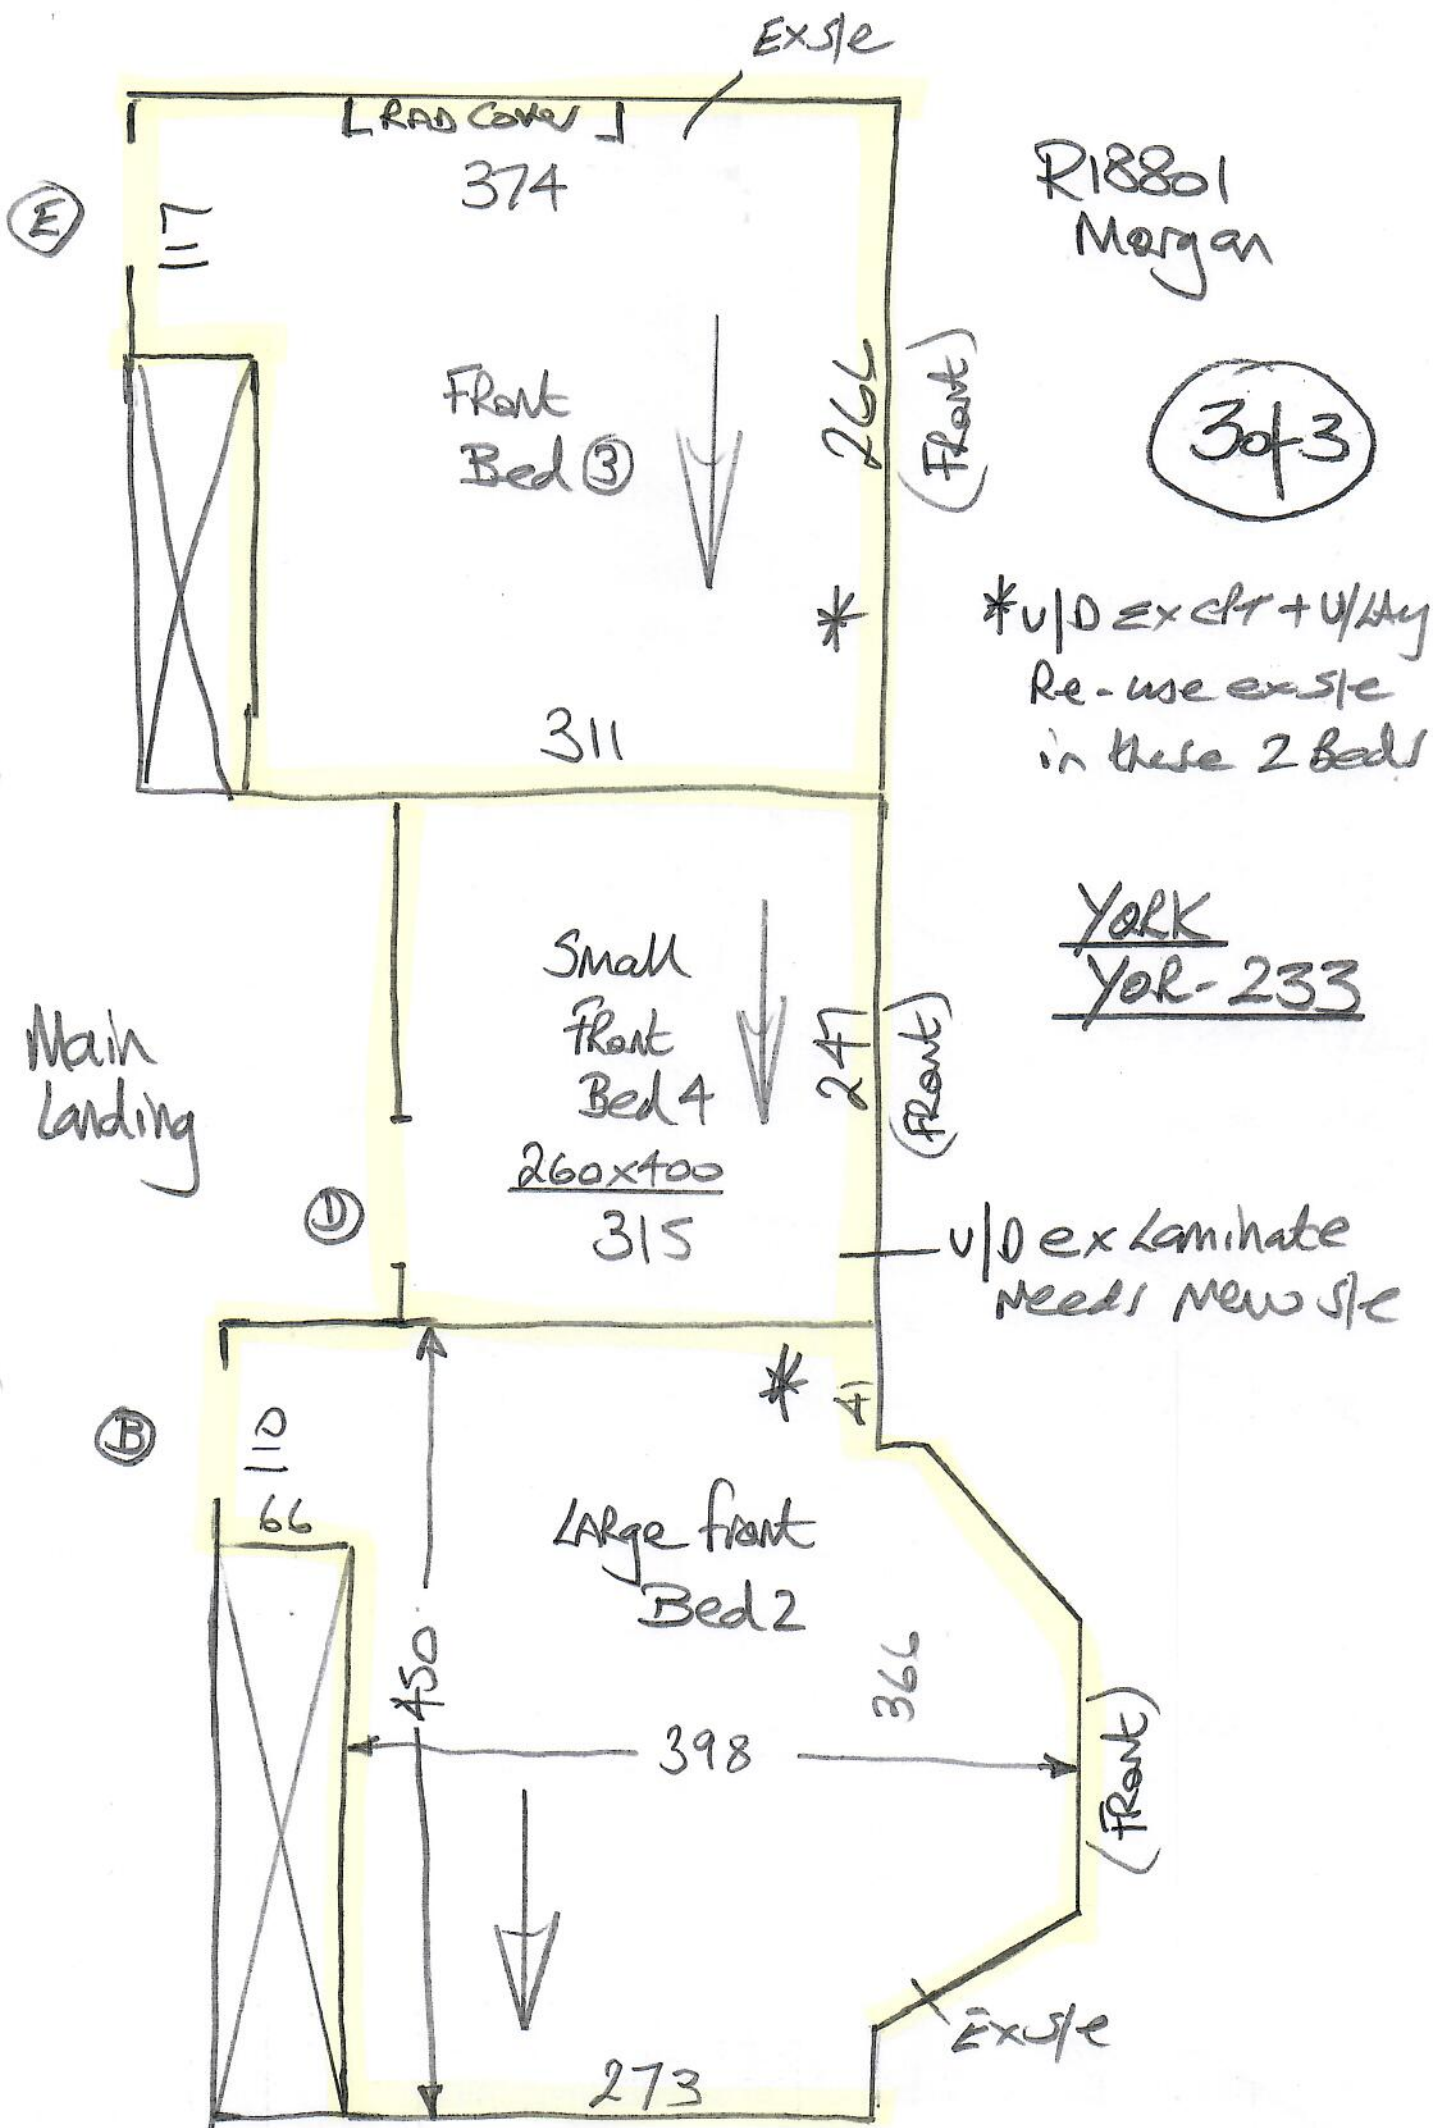 Ex s/e
[RAD Cover]
374
R18801
Morgan
E
117
Front
Bed 3
266
(Front)
3 of 3
*
* U/D Ex cpt + U/Lay
Re-use ex s/e
in these 2 Beds
311
YORK
YOR-233
Small
Front
Bed 4
260x400
315
247
(Front)
Main
Landing
D
U/D ex Laminate
Needs New s/e
*
41
B
110
66
Large front
Bed 2
450
366
398
(Front)
Ex s/e
273